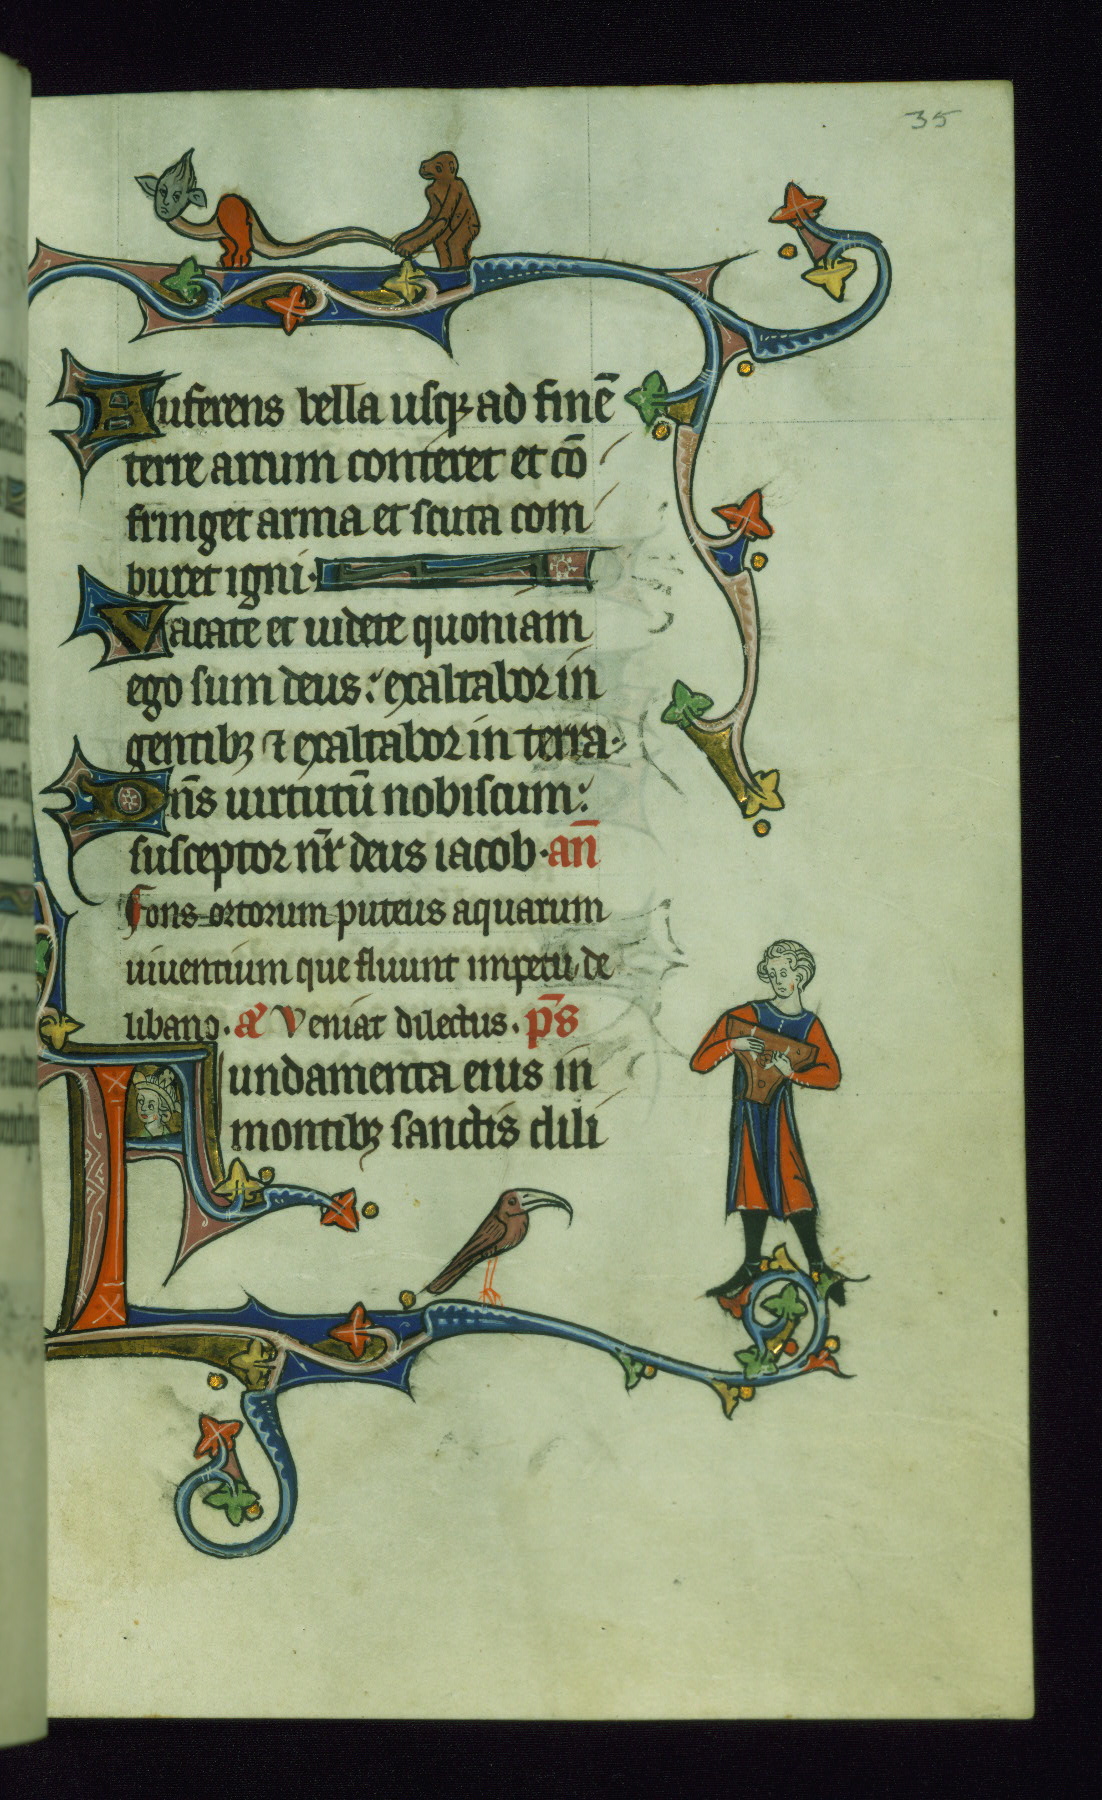 35
Auferens bella usq; ad finē
terre arcum conteret et cō
fringet arma et scuta com
buret igni·
Vacate et uidete quoniam
ego sum deus: exaltabor in
gentib; ⁊ exaltabor in terra·
Dn̄s uirtutū nobiscum:
susceptor nr̄ deus iacob· an̄
Fons ortorum puteus aquarum
uiuentium que fluunt impetu de
libano· æ Veniat dilectus· p̄s
Fundamenta eius in
montib; sanctis dili